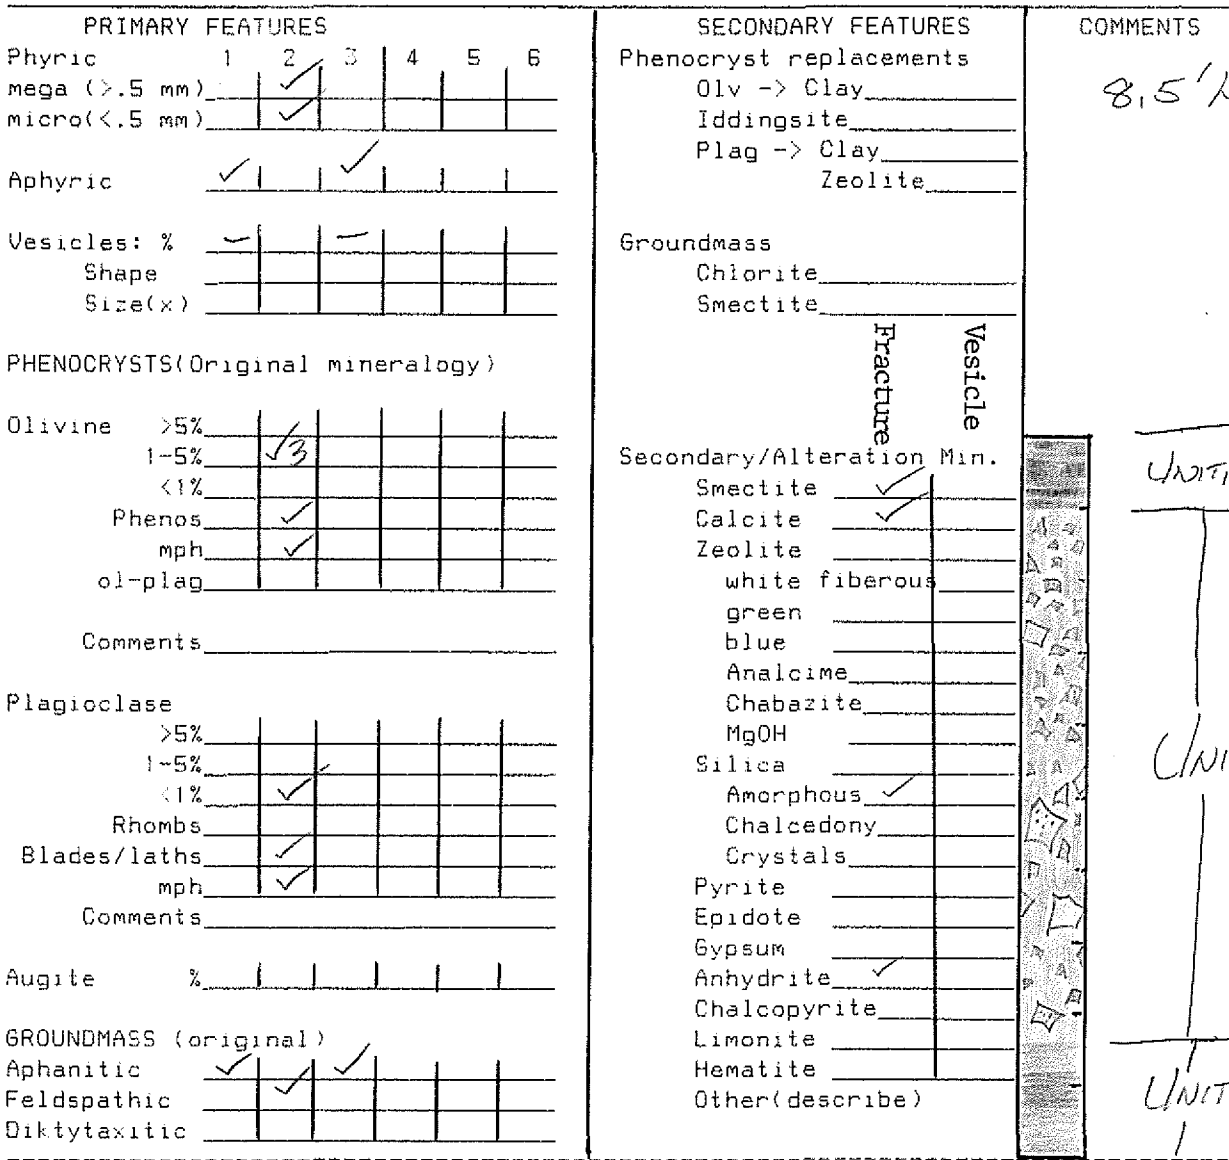 PRIMARY FEATURES
Phyric 1 2 3 4 5 6
mega (>.5 mm) ✓
micro(<.5 mm) ✓
Aphyric ✓ ✓
Vesicles: % – –
Shape
Size(x)
PHENOCRYSTS(Original mineralogy)
Olivine >5%
1-5% ✓3
<1%
Phenos ✓
mph ✓
ol-plag
Comments
Plagioclase
>5%
1-5%
<1% ✓
Rhombs
Blades/laths ✓
mph ✓
Comments
Augite %
GROUNDMASS (original)
Aphanitic ✓ ✓
Feldspathic ✓
Diktytaxitic
SECONDARY FEATURES
Phenocryst replacements
Olv -> Clay
Iddingsite
Plag -> Clay
Zeolite
Groundmass
Chlorite
Smectite
Fracture
Vesicle
Secondary/Alteration Min.
Smectite ✓
Calcite ✓
Zeolite
white fiberous
green
blue
Analcime
Chabazite
MgOH
Silica
Amorphous ✓
Chalcedony
Crystals
Pyrite
Epidote
Gypsum
Anhydrite ✓
Chalcopyrite
Limonite
Hematite
Other(describe)
COMMENTS
8.5'
UNIT
UNI
UNIT